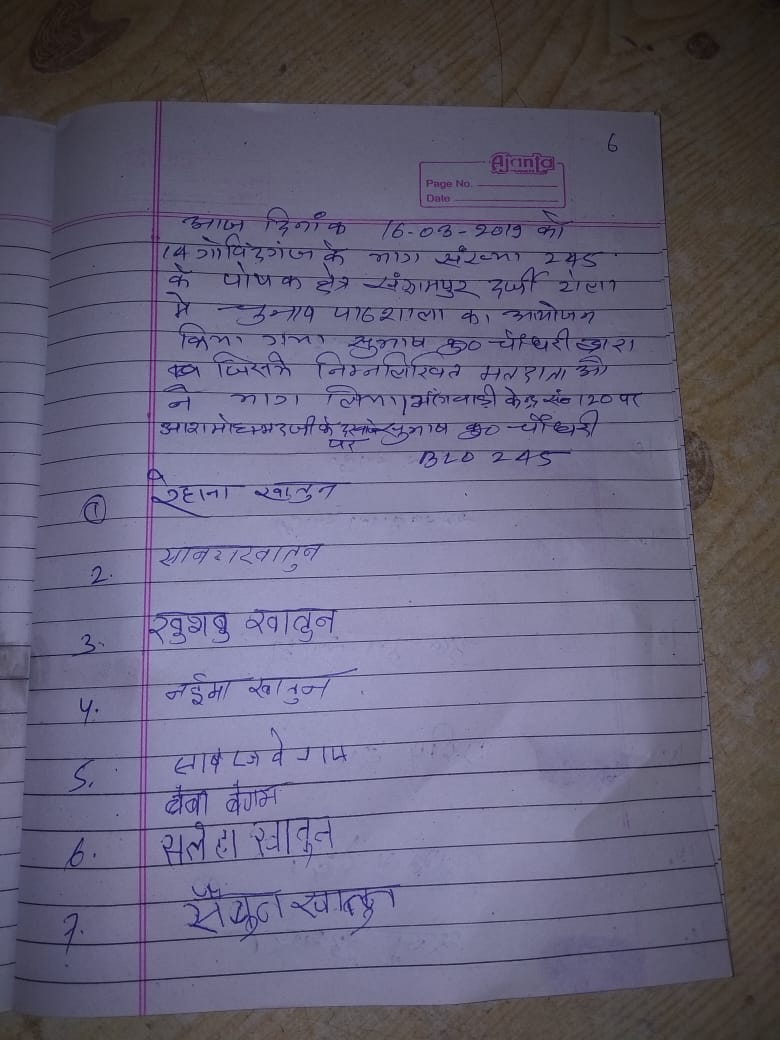 6
Ajanta
Page No.
Date
आज दिनांक 16-03-2019 को
14 गोविंदगंज के भाग संख्या 245
के पोषक क्षेत्र संग्रामपुर दर्जी टोला
में चुनाव पाठशाला का आयोजन
किया गया सुभाष कु० चौधरी द्वारा
जिसमें निम्नलिखित मतदाता ओ
ने भाग लिया। आंगनवाड़ी केन्द्र सं० 120 पर
मोहम्मद जी के सुभाष कु० चौधरी
पर
BLO 245
1 रेहाना खातुन
2. खातुन
3. खुशबु खातुन
4. नईमा खातुन
5. बेगम
बेबी बेगम
6. सलेहा खातुन
7. खातुन